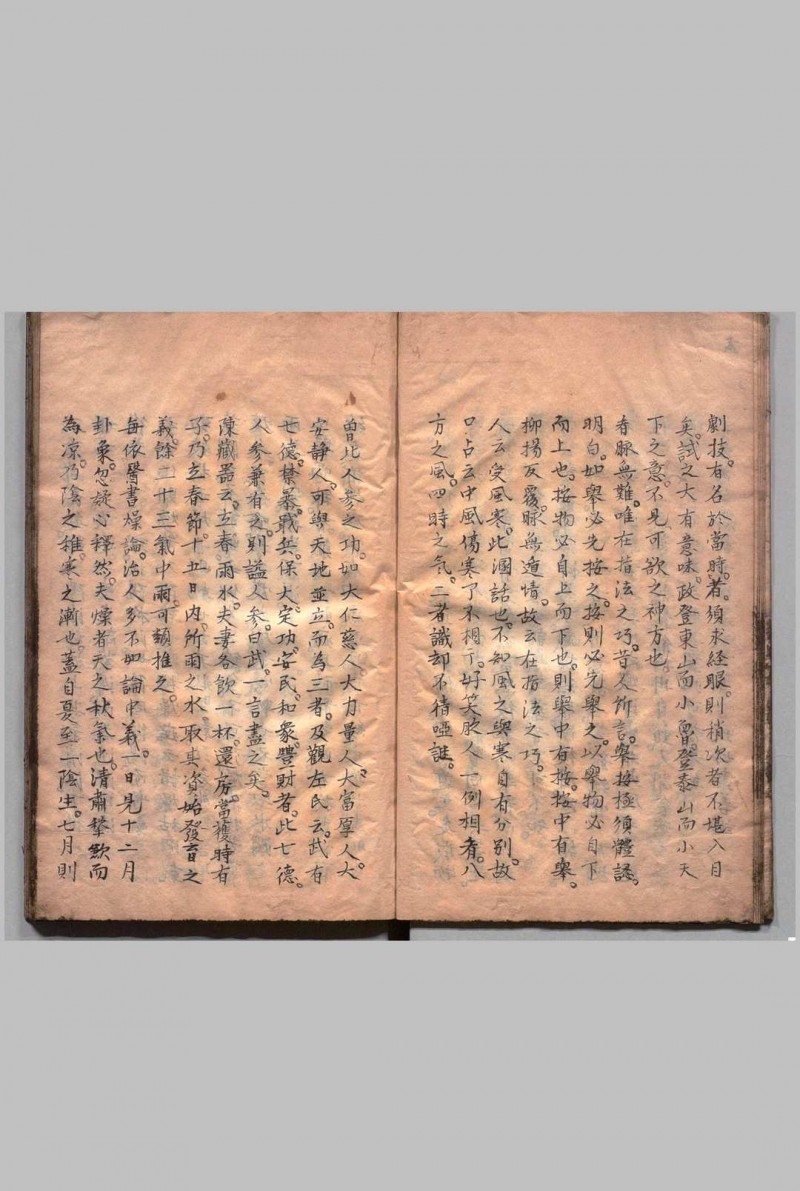 劇技。有名於當時者。須求経眼。則梢次者不堪入目
矣。試之大有意味。政登東山而小魯。登泰山而小天
下之意。不見可欲之神方也。
看脉無難。唯在指法之巧。昔人所言。舉按極須體認。
明白。如舉必先按之。按則必先舉之。以舉物必自下
而上也。按物必自上而下也。則舉中有按。按中有舉。
抑揚反覆。脉無遁情。故云在指法之巧。
人云受風寒。此溷話也。不知風之與寒自有分別。故
口占云中風傷寒了不相丁。好笑庸人一例相看。八
方之風。四時之氣。二者識却不待啞誑。
曽比人參之功。如大仁慈人。大力量人。大富厚人。大
安靜人。可與天地並立。而為三者。及觀左氏云。武有
七德。禁暴。戢兵。保大。定功。安民。和衆。豐財者。此七德。
人參兼有之。則謚人參曰武。一言盡之矣。
陳藏器云。立春雨水。夫妻各飲一杯。還房。當獲時有
子。乃立春節。十五日内。所雨之水。取其資始發育之
義。餘二十三氣中雨。可類推之。
每依醫書燥論。治人多不如論中義。一日見十二月
卦象。忽疑心釋然。夫燥者天之秋氣也。清肅摯歛而
為凉。乃陰之稚。寒之漸也。蓋自夏至一陰生。七月則